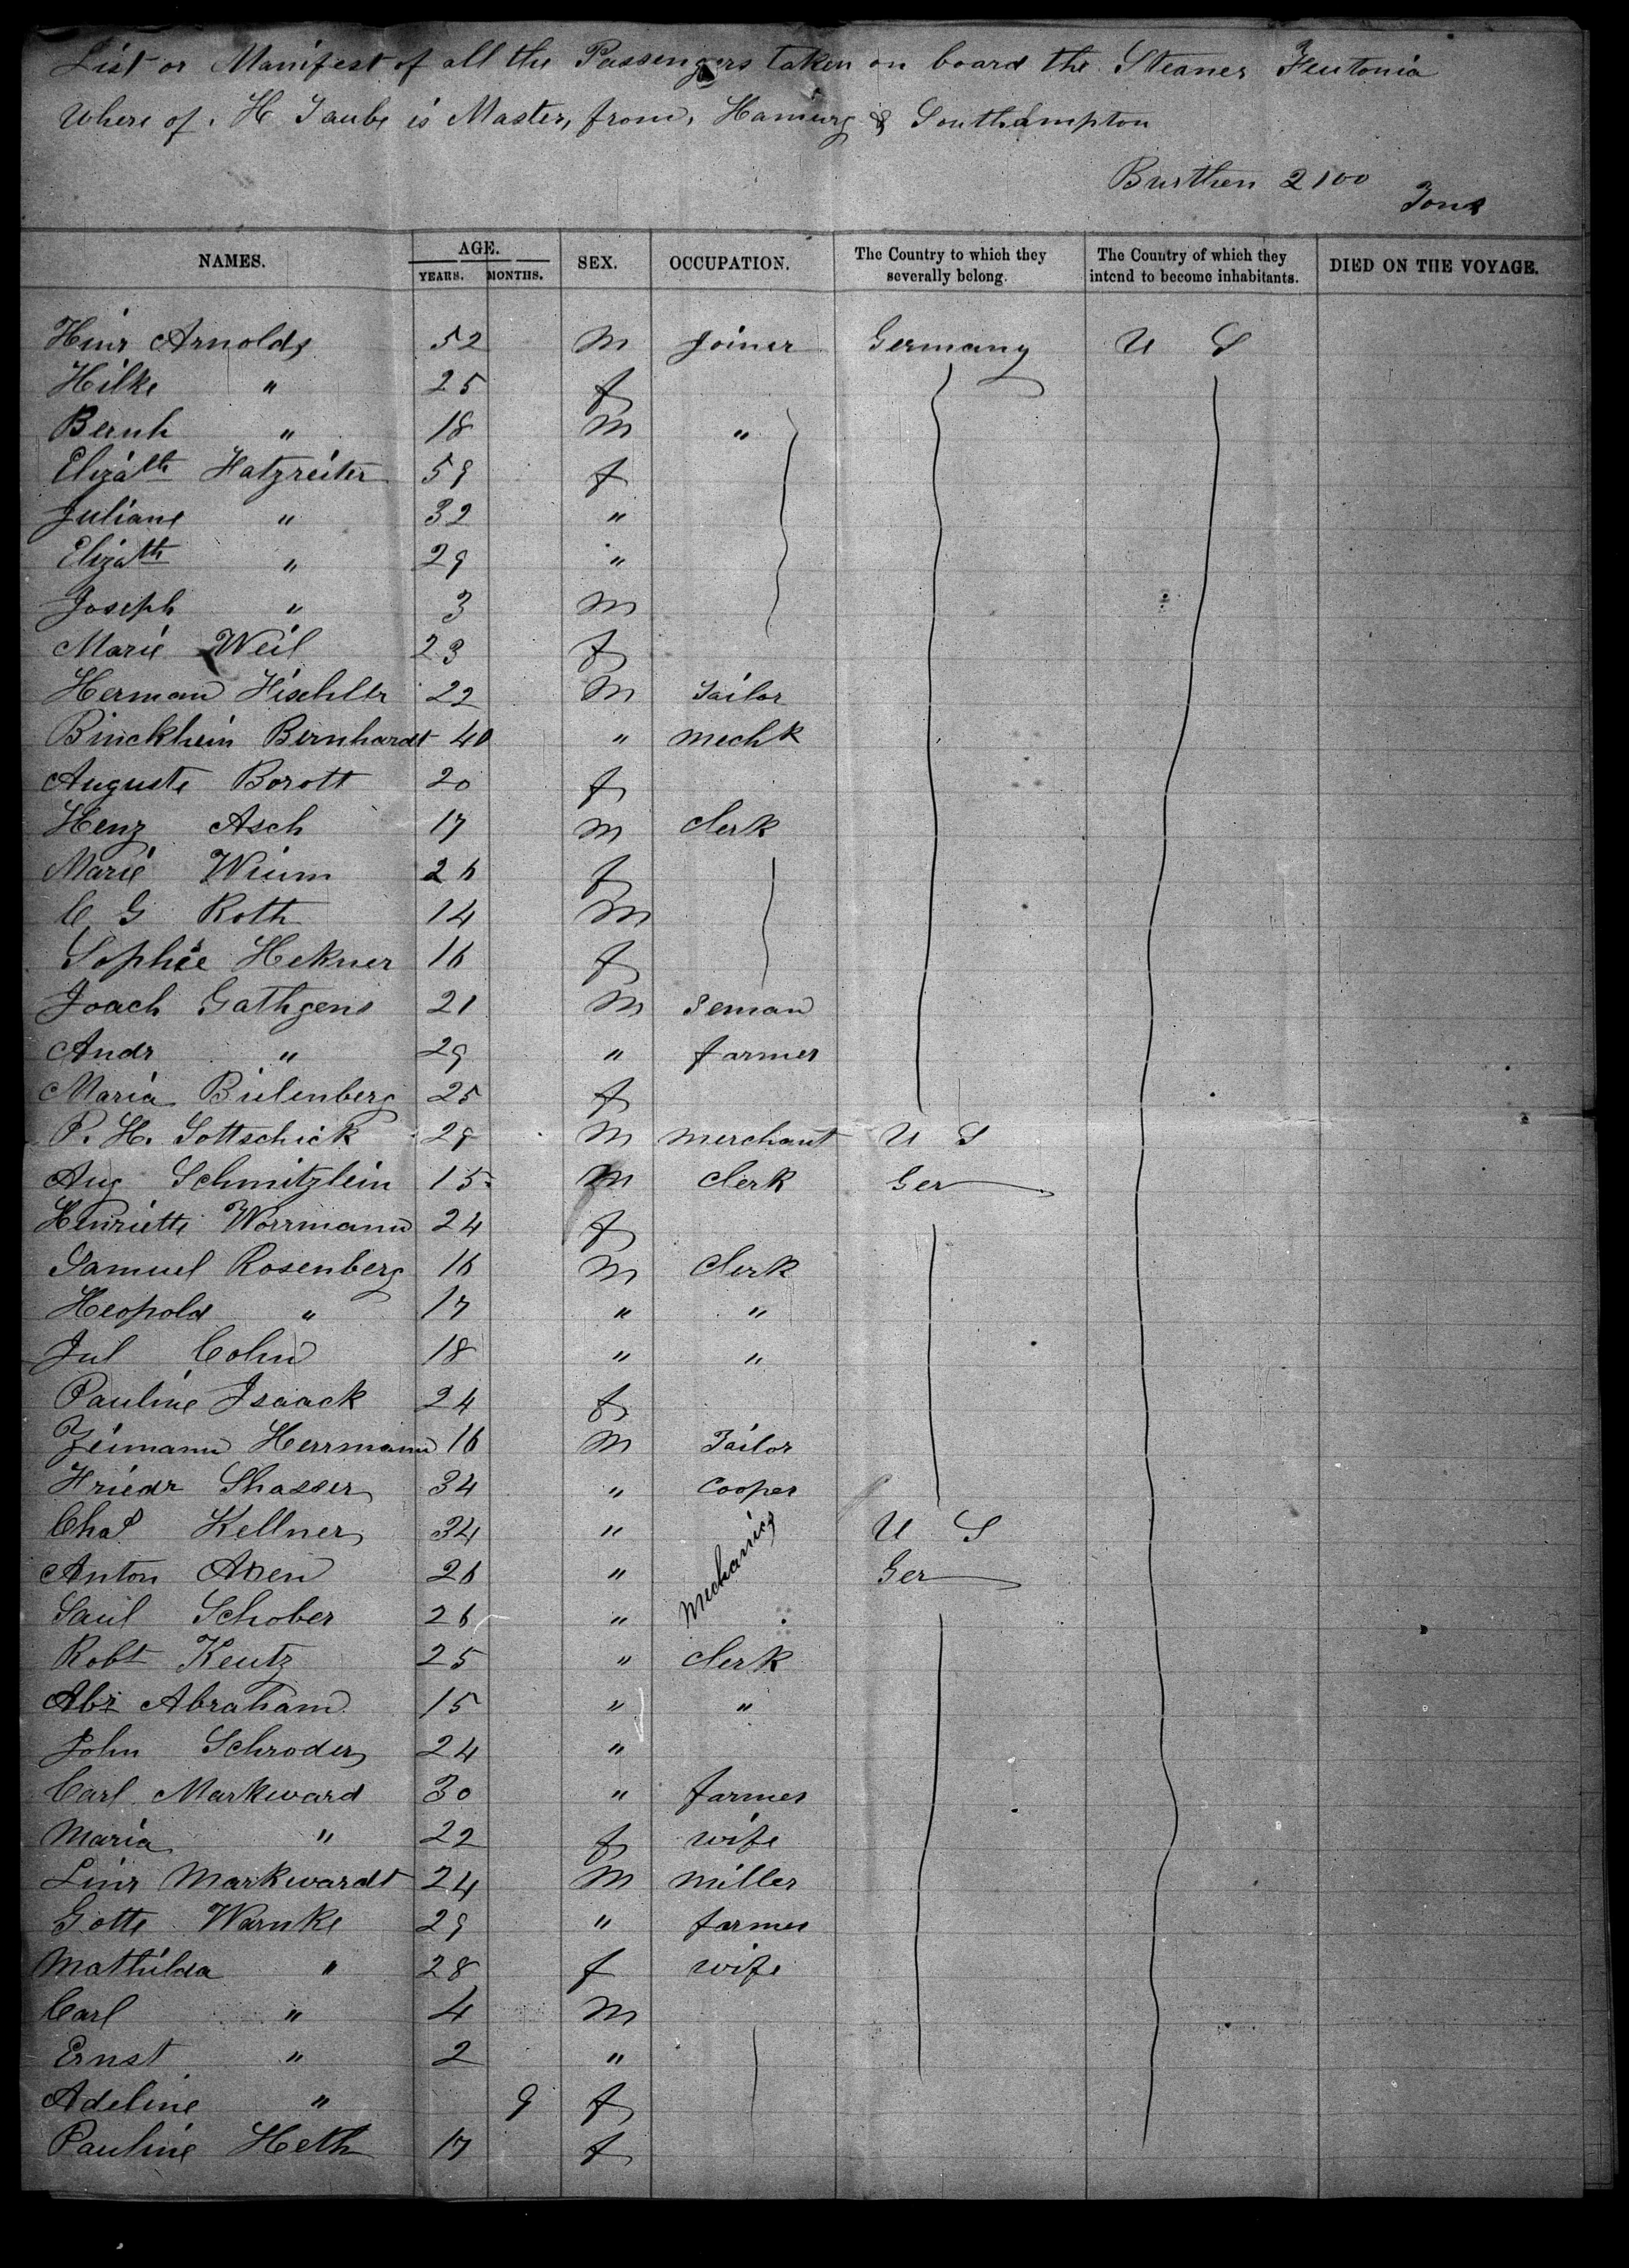 List or Manifest of all the Passengers taken on board the Steamer Teutonia
Where of. H Taube is Master, from, Hamurg & Southampton
Burthen 2100 Tons
NAMES. AGE. YEARS. MONTHS. SEX. OCCUPATION. The Country to which they severally belong. The Country of which they intend to become inhabitants. DIED ON THE VOYAGE.
Hinr Arnolds 52 M Joiner Germany U S
Hilke " 25 f
Bernh " 18 M "
Elizath Hatzreiter 59 f
Juliane " 32 "
Elizath " 29 "
Joseph " 3 M
Marie Weil 23 f
Herman Fischler 22 M Tailor
Binckhein Bernhardt 40 " Mechk
Auguste Borott 20 f
Henz Asch 17 M Clerk
Marie Wiem 26 f
C G Roth 14 M
Sophie Hekner 16 f
Joach Gathgens 21 M Seman
Andr " 29 " farmer
Maria Bielenberg 25 f
P. H. Gottschick 29 M Merchant U S
Aug Schmitzlein 15 M Clerk Ger
Henriette Worrmann 24 f
Samuel Rosenberg 16 M Clerk
Heopold " 17 " "
Jul Cohn 18 " "
Pauline Isaack 24 f
Zeimann Herrmann 16 M Tailor
Friedr Shasser 34 " Cooper
Chas Kellner 34 " Mechanics U S
Anton 26 " Ger
Saul Schober 26 "
Robt Keutz 25 " Clerk
Abr Abraham 15 " "
John Schroder 24 "
Carl Markward 30 " farmer
Maria " 22 f wife
Linr Markwardt 24 M Miller
Gotte Warnke 29 " farmer
Mathilda " 28 f wife
Carl " 4 M
Ernst " 2 "
Adeline " 9 f
Pauline Heth 17 f